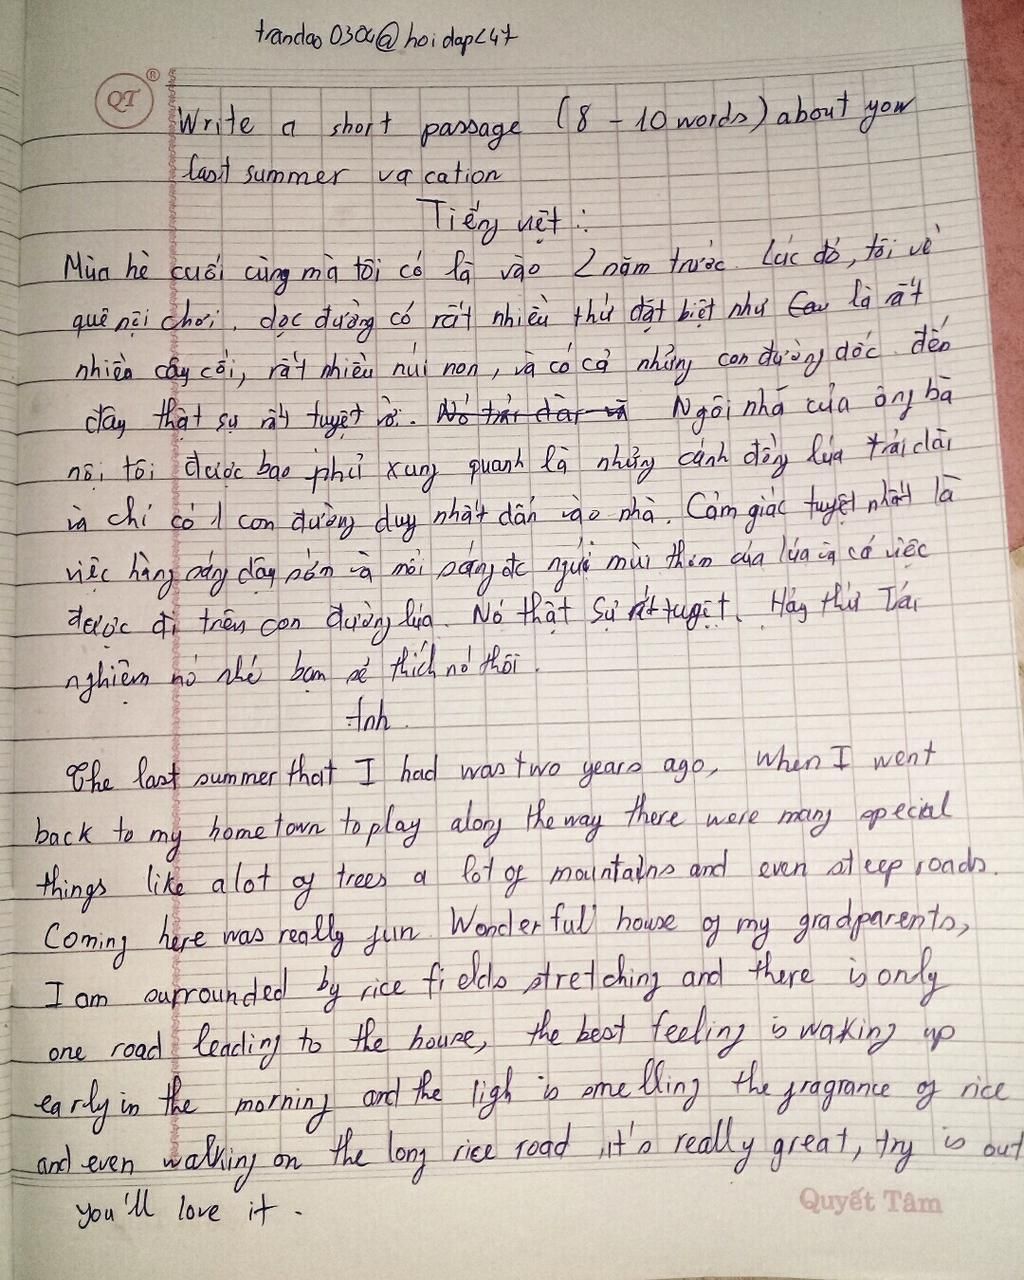 trandao0304@hoidap247
QT
®
Write a short passage (8 - 10 words) about your
last summer vacation
Tiếng việt :
Mùa hè cuối cùng mà tôi có là vào 2 năm trước. Lúc đó, tôi về
quê nội chơi. dọc đường có rất nhiều thứ đặt biệt như là rất
nhiều cây cối, rất nhiều núi non, và có cả những con đường dốc. đến
đây thật sự rất tuyệt vời. Ngôi nhà của ông bà
nội tôi được bao phủ xung quanh là những cánh đồng lúa trải dài
và chỉ có 1 con đường duy nhất dẫn vào nhà. Cảm giác tuyệt nhất là
việc hàng sáng dậy sớm và mỗi sáng đc ngửi mùi thơm của lúa và có việc
được đi trên con đường lúa. Nó thật sự rất tuyệt. Hãy thử Trải
nghiệm nó nhé bạn sẽ thích nó thôi.
Anh.
The last summer that I had was two years ago, when I went
back to my hometown to play along the way there were many special
things like alot of trees a lot of mountains and even steep roads.
Coming here was really fun. Wonderfull house of my gradparents,
I am surrounded by rice fields stretching and there is only
one road leading to the house, the best feeling is waking up
early in the morning and the ligh is smelling the fragrance of rice
and even walking on the long rice road, it's really great, try is out
you'll love it.
Quyết Tâm